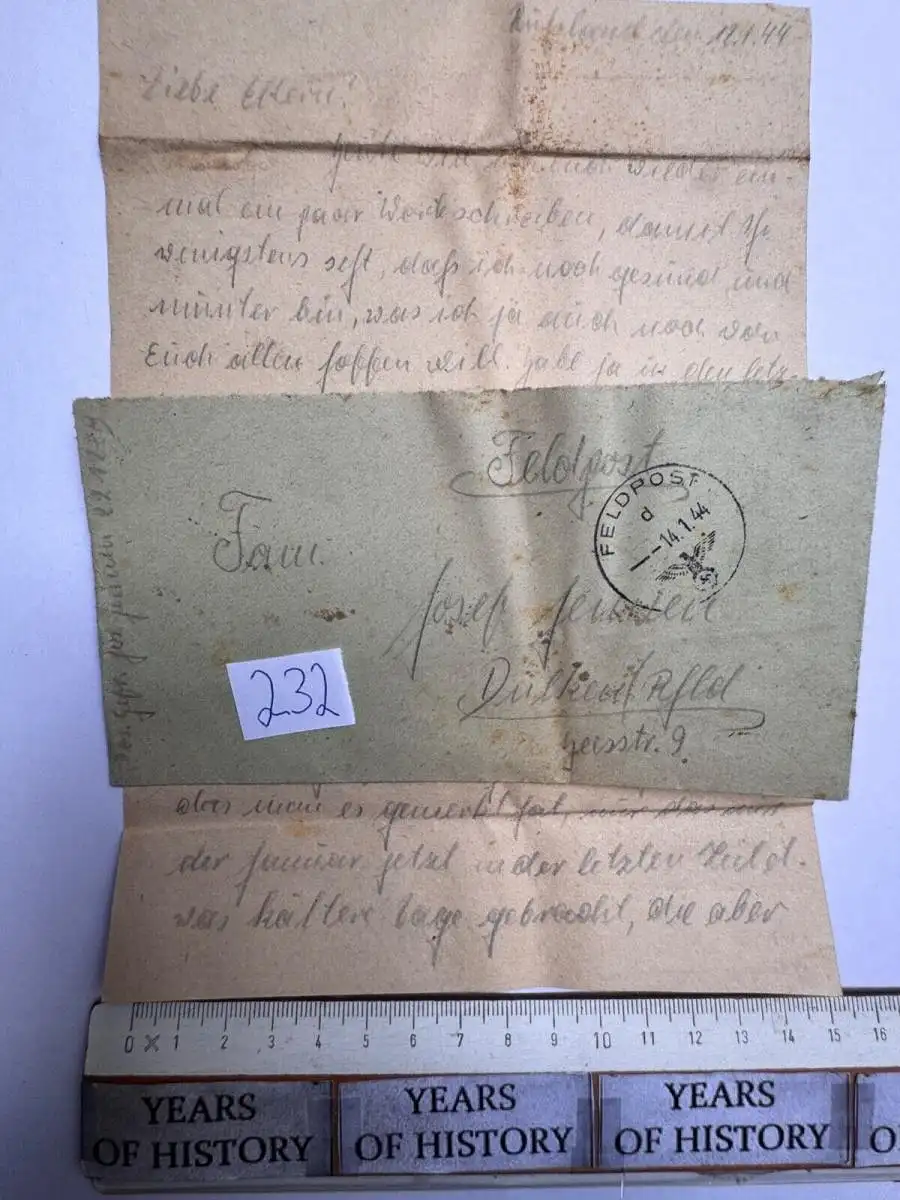 Rußland den 12.1.44
Liebe Eltern!
Heute will wieder ein-
mal ein paar Worte schreiben, damit Ihr
wenigstens seht, daß ich noch gesund und
munter bin, was ich ja auch noch von
Euch allen hoffen will. Habe ja in den letz-
Feldpost
FELDPOST
d
14.1.44
Fam.
Josef
Dülken Rhld
str. 9
232
das man es gemerkt hat, nur das uns
der Januar jetzt in der letzten Zeit et-
was kältere Tage gebracht, die aber
0 1 2 3 4 5 6 7 8 9 10 11 12 13 14 15 16
YEARS OF HISTORY
YEARS OF HISTORY
YEARS OF HISTORY
O